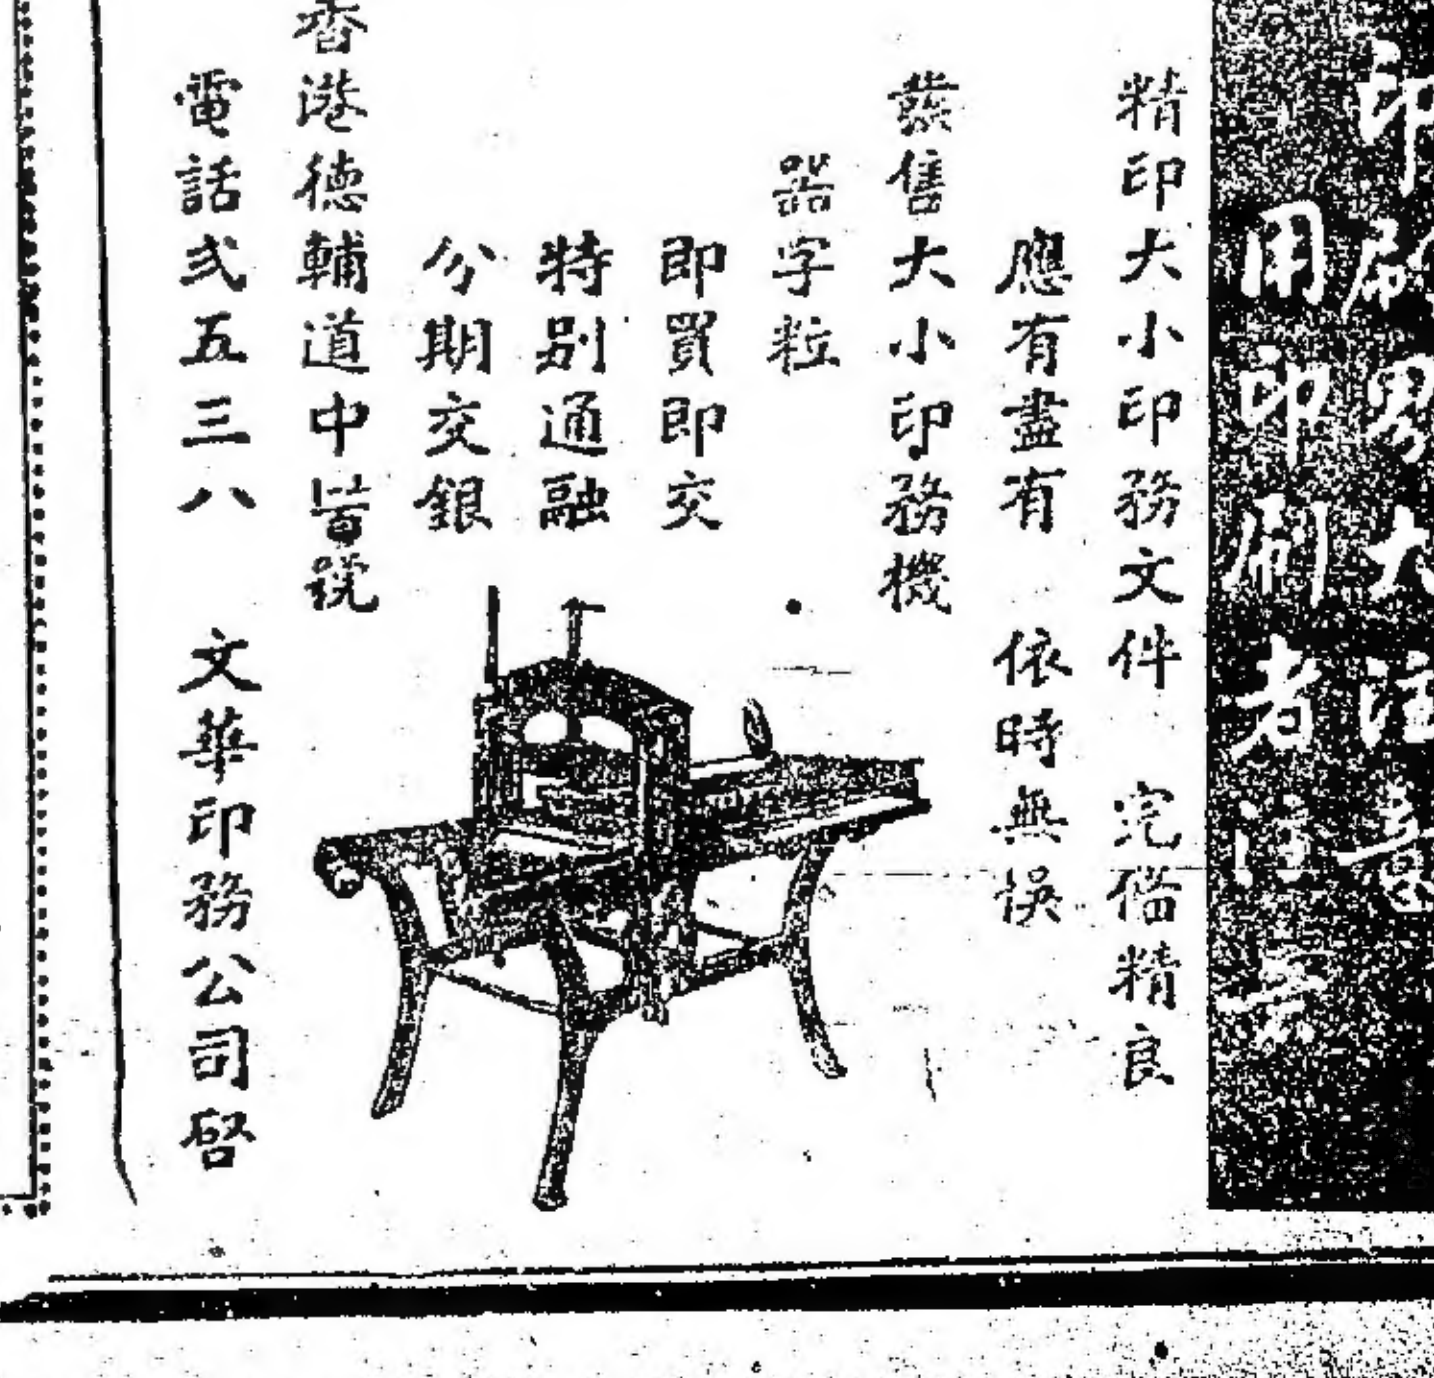 印刷界大注意
用印刷者注意
精印大小印務文件　完俻精良
應有盡有　依時無悞
發售大小印務機
器字粒
即買即交
特別通融
分期交銀
香港德輔道中號
電話弍五三八　文華印務公司啓